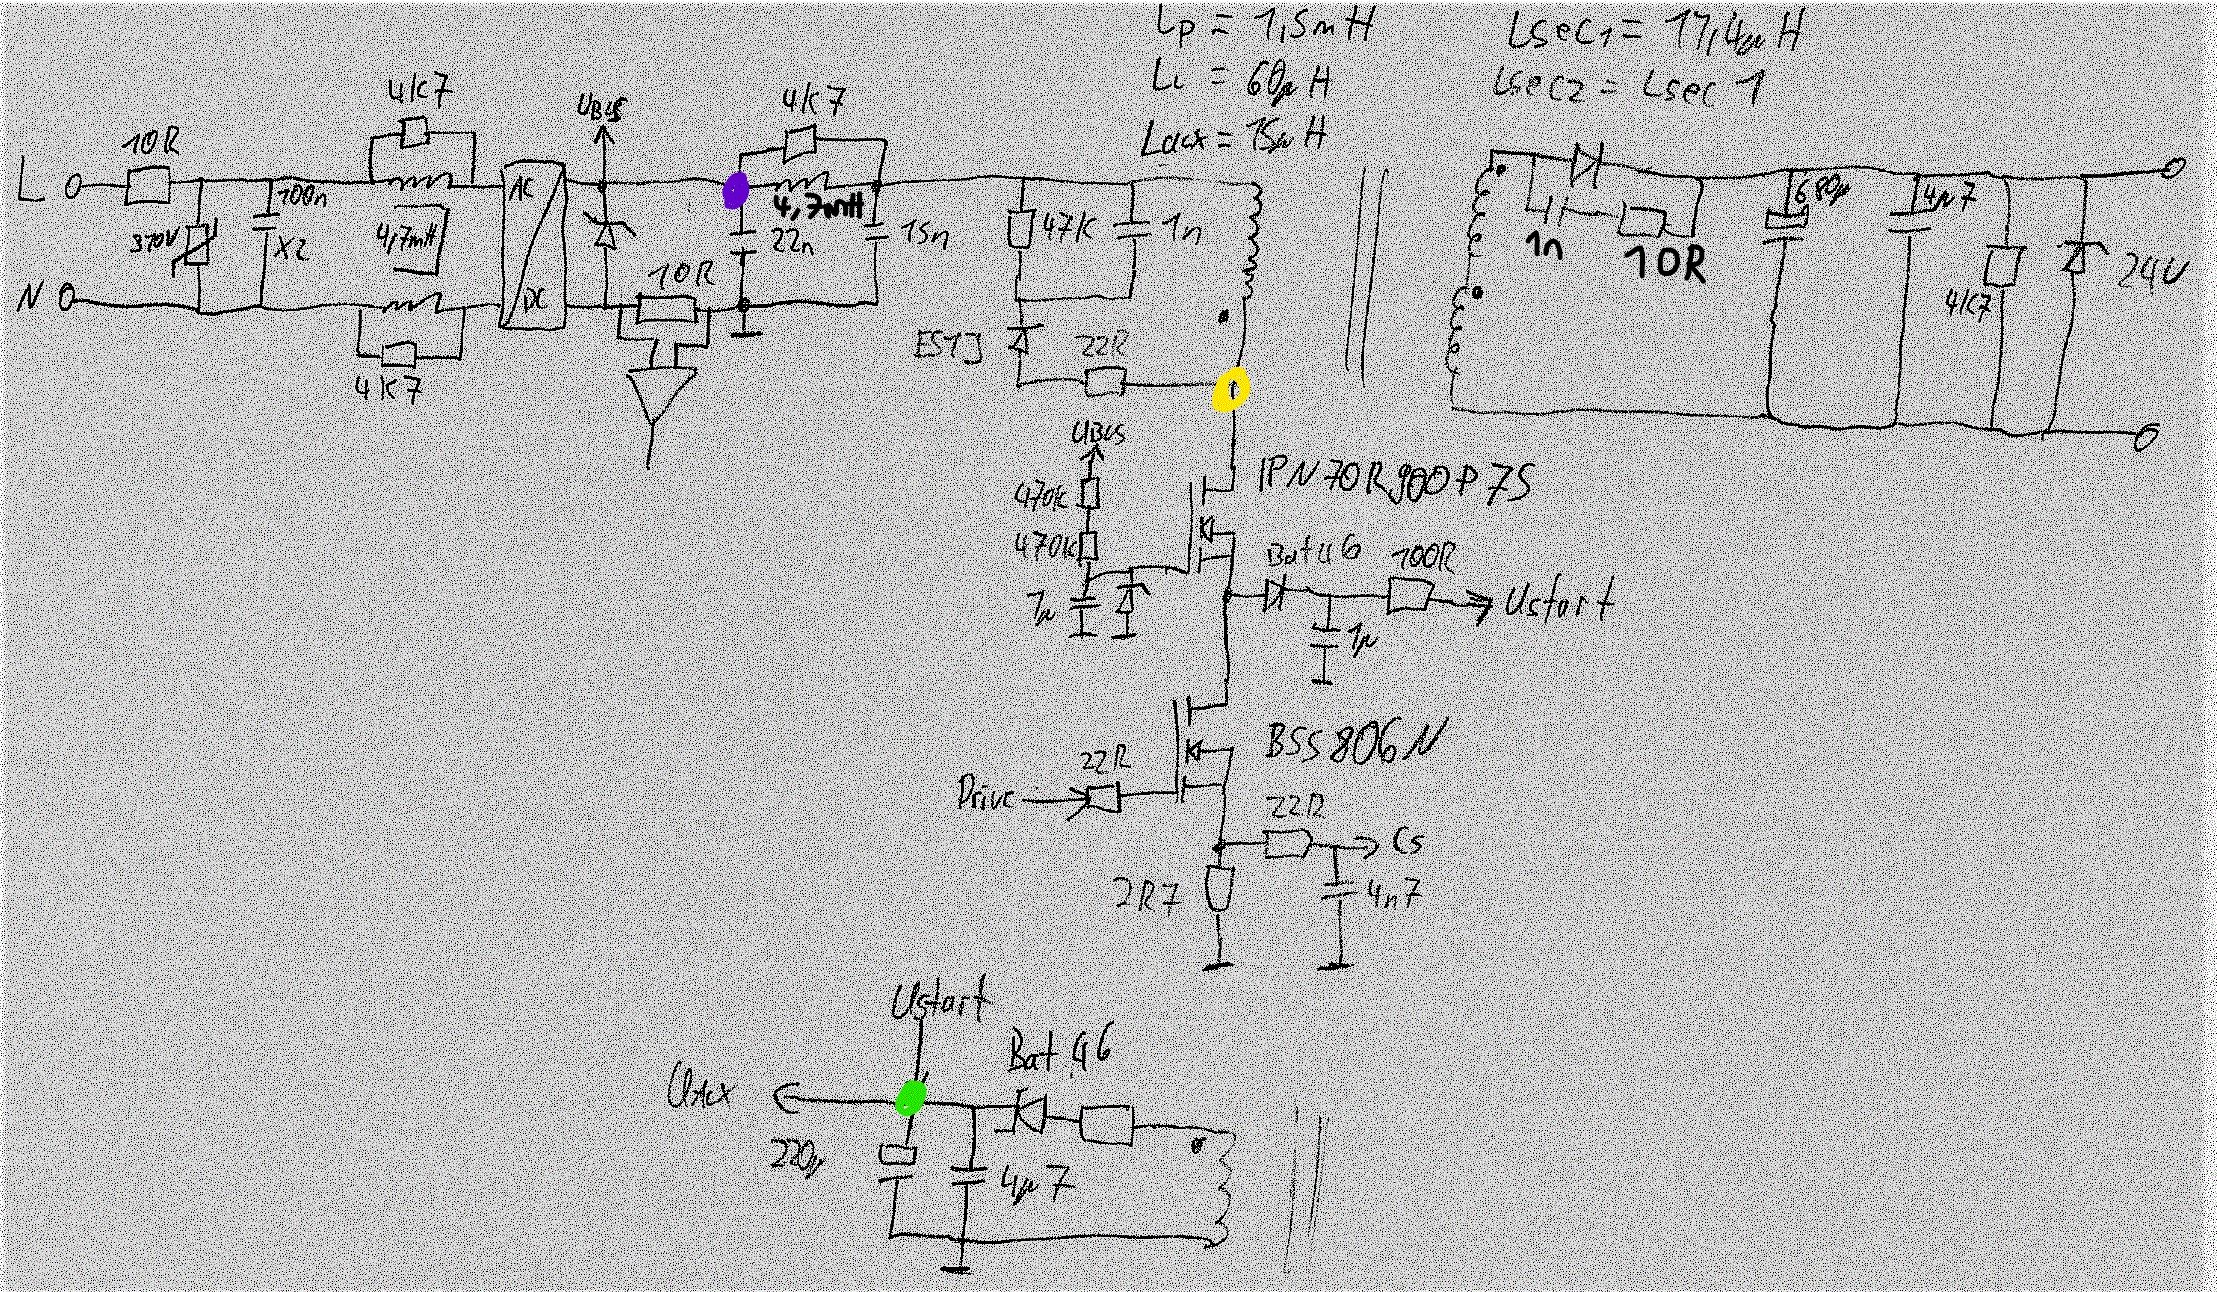 Lp = 1,5mH
LL = 60µH
Laux = 15µH
Lsec1 = 17,4µH
Lsec2 = Lsec1
L
10R
370V
100n
X2
4k7
4,7mH
4k7
N
AC
DC
UBUS
10R
4k7
4,7mH
22n
15n
47K
1n
ES1J
22R
1n
10R
680µ
4µ7
4k7
24V
UBUS
470k
470k
1µ
IPN70R900P7S
Bat46
100R
Ustart
1µ
Drive
22R
BSS806N
22R
Cs
2R7
4n7
Ustart
UAux
Bat46
220µ
4µ7